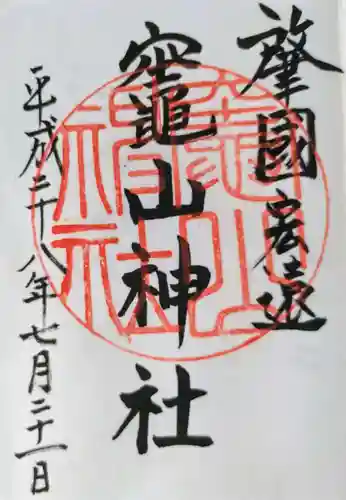 肇國宏遠
竈山神社
平成二十八年七月二十一日
竈山
神社